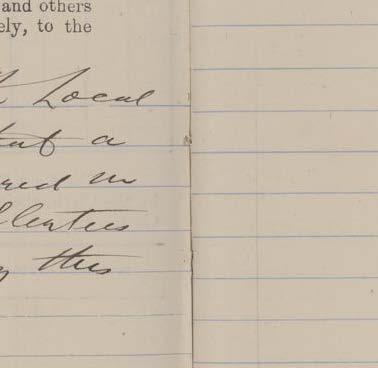 and others
ely, to the
Local
but a
red in
this